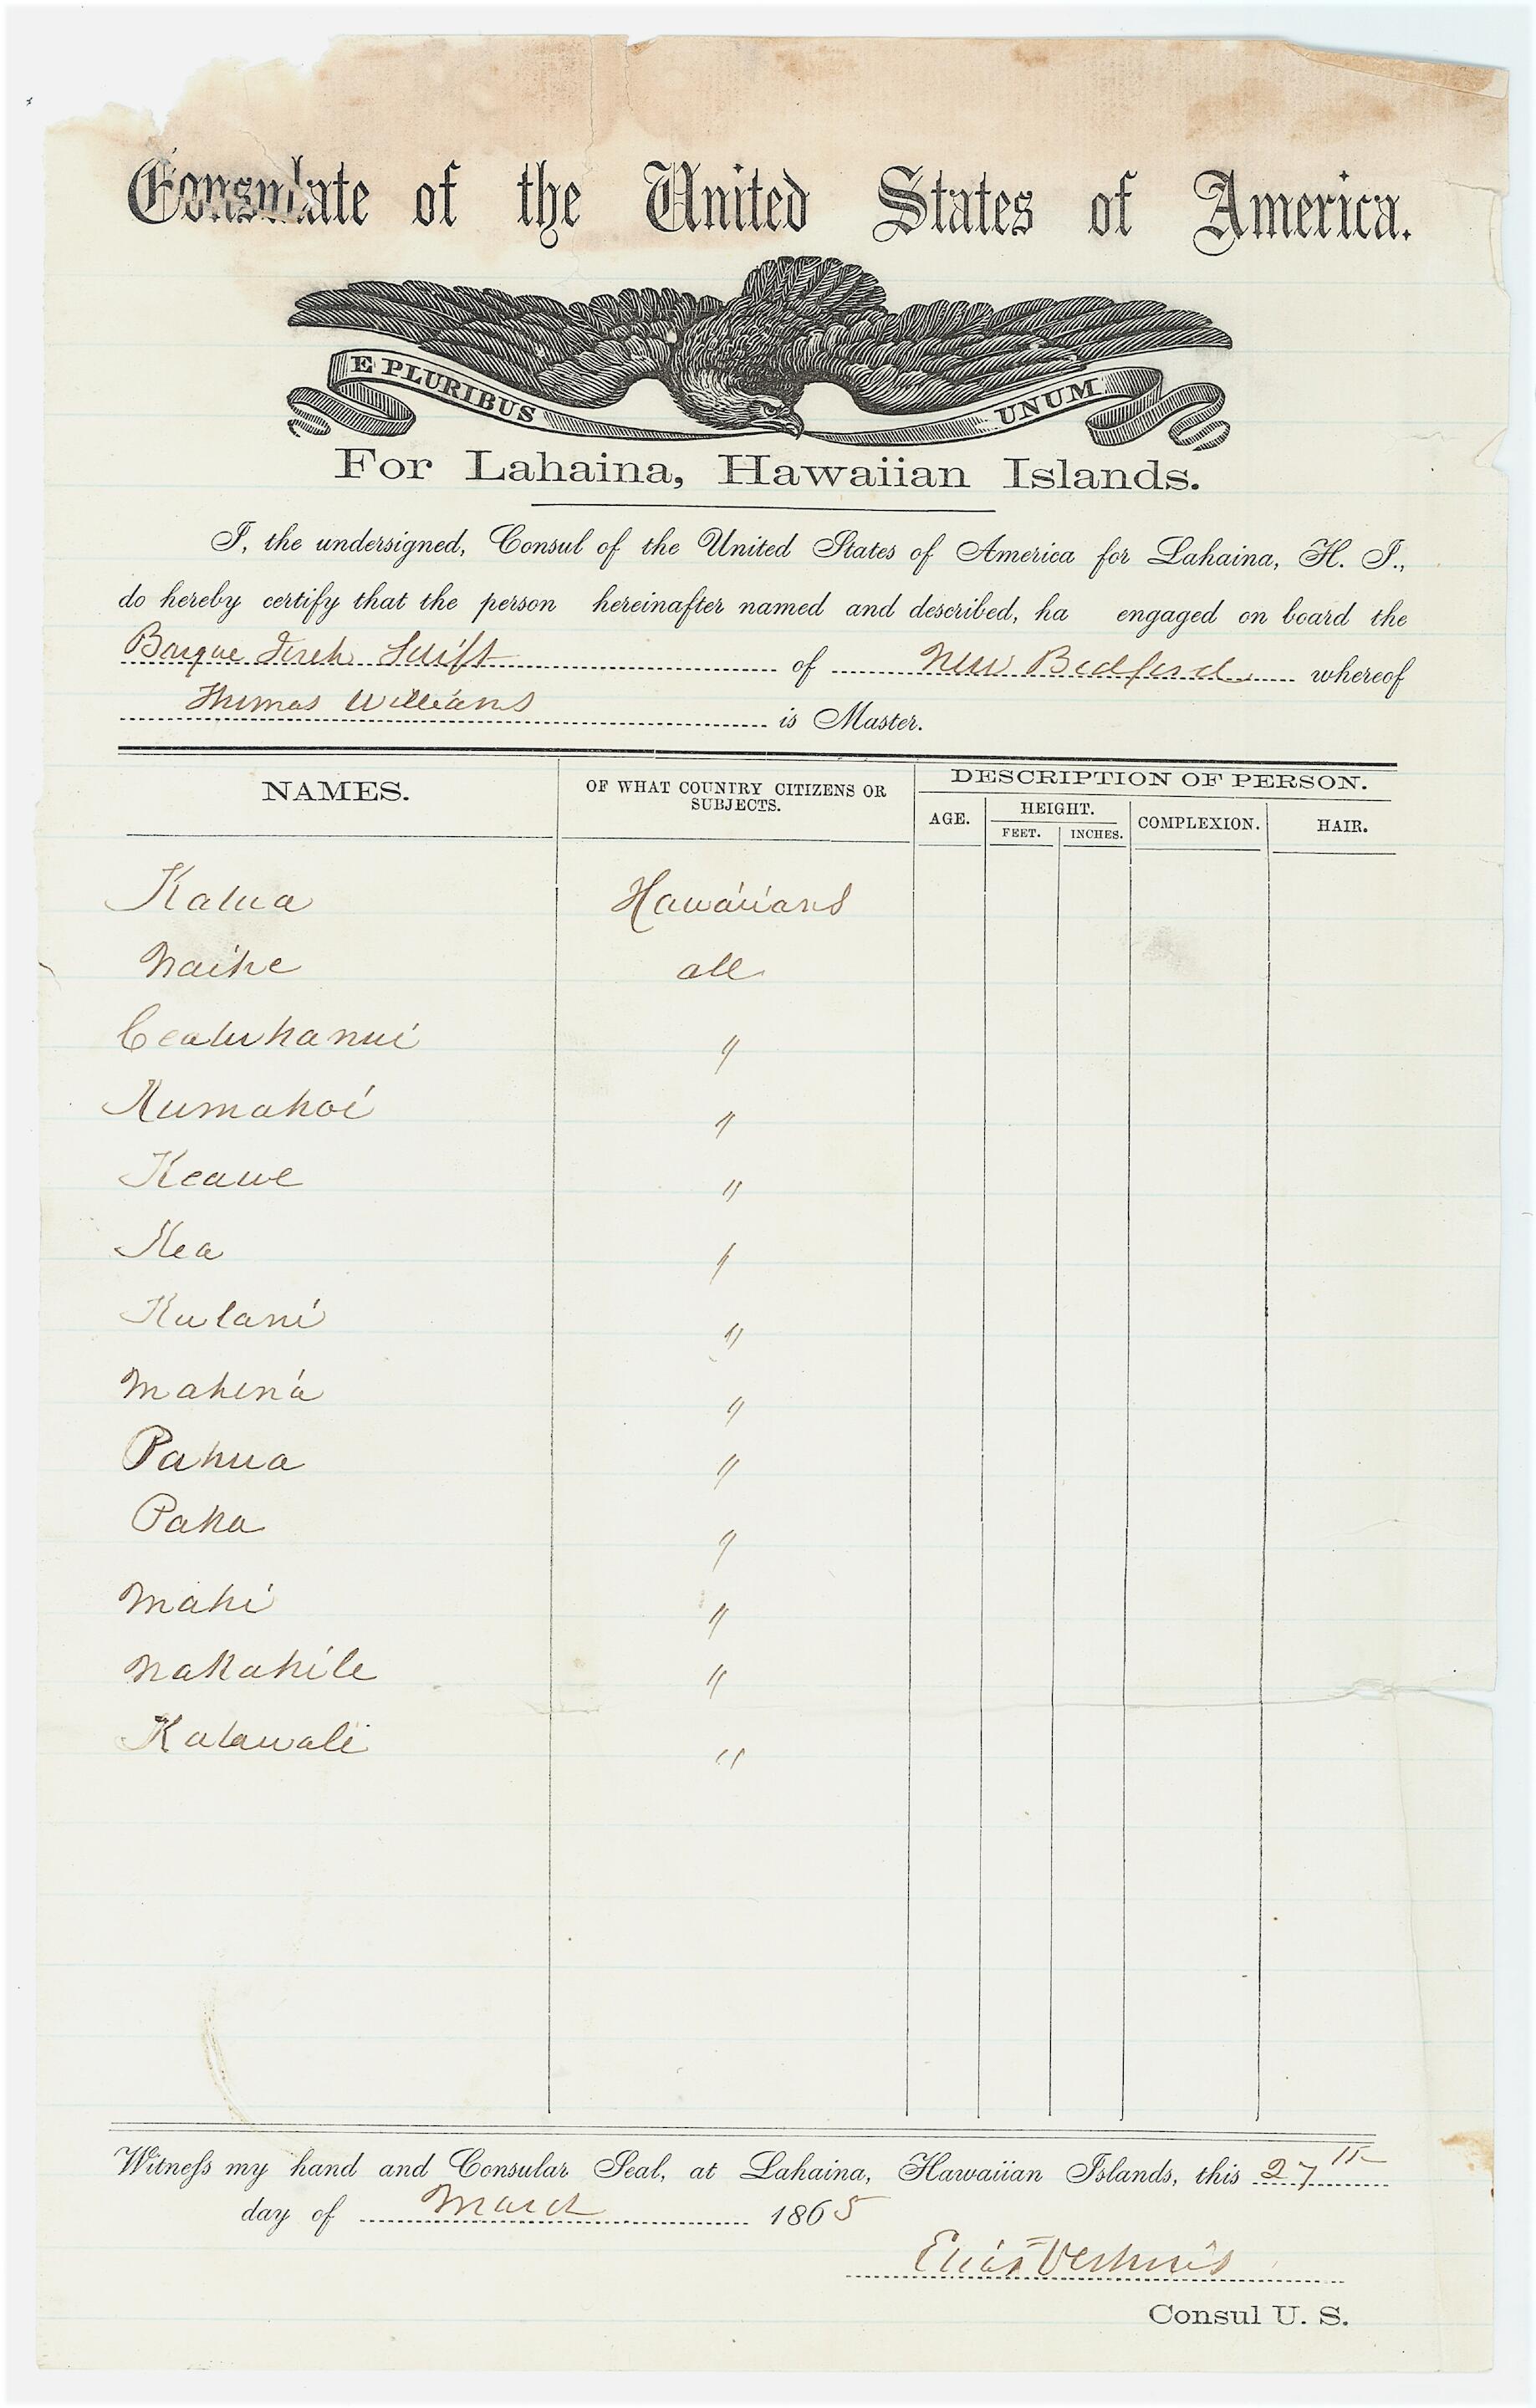 Consulate of the United States of America.
E PLURIBUS UNUM
For Lahaina, Hawaiian Islands.
I, the undersigned, Consul of the United States of America for Lahaina, H. I.,
do hereby certify that the person hereinafter named and described, ha engaged on board the
Barque Jireh Swift of New Bedford whereof
Thomas Williams is Master.
NAMES. OF WHAT COUNTRY CITIZENS OR SUBJECTS. DESCRIPTION OF PERSON.
AGE. HEIGHT. FEET. INCHES. COMPLEXION. HAIR.
Kalua Hawaiians
Naihe all
"
Kumahoi "
Keawe "
Kea "
Kulani "
Mahina "
Pahua "
Paka "
Mahi "
Nakahile "
Kalawali "
Witness my hand and Consular Seal, at Lahaina, Hawaiian Islands, this 27th
day of March 1865
Elias
Consul U. S.